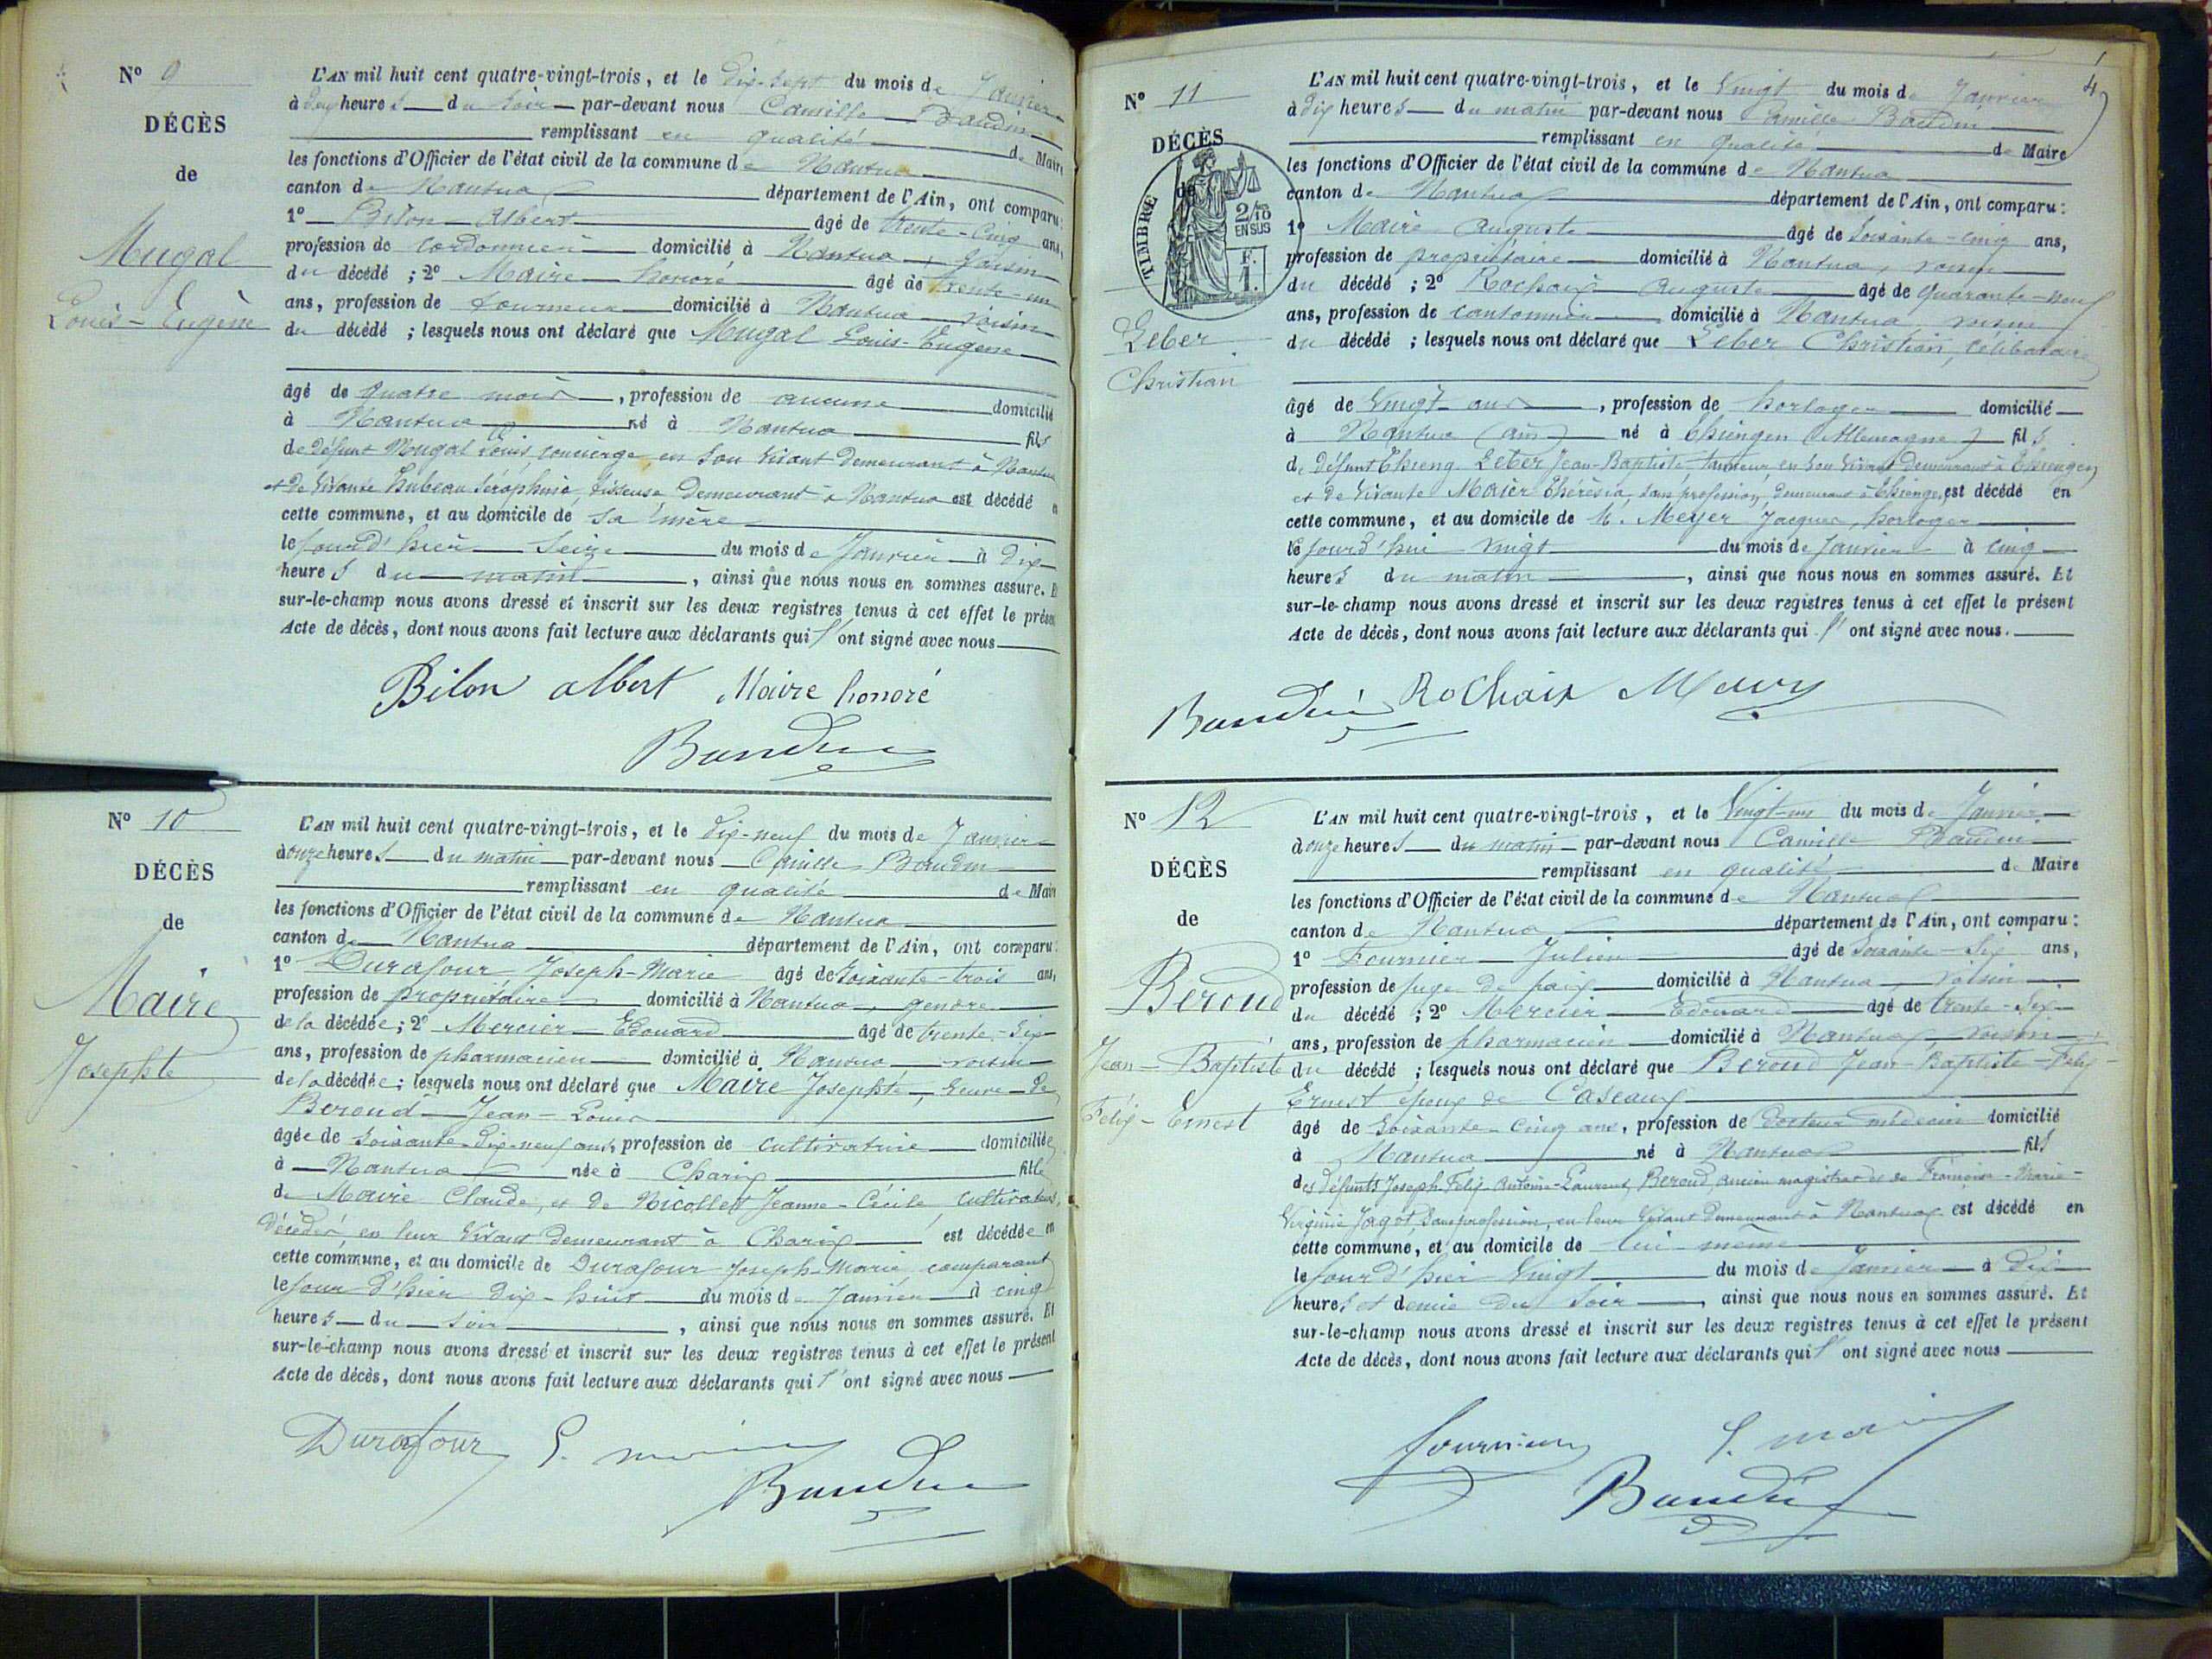 N° 9
DÉCÈS
de
Mugal
Louis-Eugène
L'AN mil huit cent quatre-vingt-trois, et le dix-sept du mois de Janvier
à deux heures du soir par-devant nous Camille Baudin
remplissant en qualité de Maire
les fonctions d'Officier de l'état civil de la commune de Nantua
canton de Nantua département de l'Ain, ont comparu:
1° Bilon Albert âgé de trente-cinq ans,
profession de cordonnier domicilié à Nantua, voisin
du décédé ; 2° Maire honoré âgé de trente-un
ans, profession de tourneur domicilié à Nantua voisin
du décédé ; lesquels nous ont déclaré que Mugal Louis-Eugène
âgé de quatre mois, profession de aucune domicilié
à Nantua né à Nantua fils
de défunt Mugal Louis, concierge en son vivant demeurant à Nantua
et de vivante Hubeau Séraphine, tisseuse demeurant à Nantua est décédé en
cette commune, et au domicile de sa mère
le jour d'hier seize du mois de Janvier à dix
heures du matin, ainsi que nous nous en sommes assuré. Et
sur-le-champ nous avons dressé et inscrit sur les deux registres tenus à cet effet le présent
Acte de décès, dont nous avons fait lecture aux déclarants qui l'ont signé avec nous
Bilon albert Maire honoré
Baudin
N° 10
DÉCÈS
de
Maire
Josephte
L'AN mil huit cent quatre-vingt-trois, et le dix-neuf du mois de Janvier
à onze heures du matin par-devant nous Camille Baudin
remplissant en qualité de Maire
les fonctions d'Officier de l'état civil de la commune de Nantua
canton de Nantua département de l'Ain, ont comparu:
1° Durafour Joseph-Marie âgé de soixante-trois ans,
profession de propriétaire domicilié à Nantua, gendre
de la décédée ; 2° Mercier Edouard âgé de trente-six
ans, profession de pharmacien domicilié à Nantua voisin
de la décédée ; lesquels nous ont déclaré que Maire Josephte, veuve de
Beroud Jean-Louis
âgée de soixante-dix-neuf ans, profession de cultivatrice domiciliée
à Nantua née à Charix fille
de Maire Claude, et de Nicollet Jeanne-Cécile, cultivateurs,
décédés en leur vivant demeurant à Charix est décédée en
cette commune, et au domicile de Durafour Joseph-Marie comparant
le jour d'hier dix-huit du mois de Janvier à cinq
heures du soir, ainsi que nous nous en sommes assuré. Et
sur-le-champ nous avons dressé et inscrit sur les deux registres tenus à cet effet le présent
Acte de décès, dont nous avons fait lecture aux déclarants qui l'ont signé avec nous
Durafour
Baudin
4
N° 11
DÉCÈS
de
TIMBRE
2/10
EN SUS
F.
1.
Leber
Christian
L'AN mil huit cent quatre-vingt-trois, et le vingt du mois de Janvier
à dix heures du matin par-devant nous Camille Baudin
remplissant en qualité de Maire
les fonctions d'Officier de l'état civil de la commune de Nantua
canton de Nantua département de l'Ain, ont comparu:
1° Maire Auguste âgé de soixante-cinq ans,
profession de propriétaire domicilié à Nantua, voisin
du décédé ; 2° Rochaix Auguste âgé de quarante-neuf
ans, profession de cantonnier domicilié à Nantua voisin
du décédé ; lesquels nous ont déclaré que Leber Christian, célibataire
âgé de vingt ans, profession de horloger domicilié
à Nantua (ain) né à Thiengen (Allemagne) fils
de défunt Leber Jean-Baptiste tanneur en son vivant demeurant à Thiengen
et de vivante Maier Thérésia, sans profession, demeurant à Thiengen, est décédé en
cette commune, et au domicile de M. Meyer Jacques, horloger
le jourd'hui vingt du mois de Janvier à cinq
heures du matin, ainsi que nous nous en sommes assuré. Et
sur-le-champ nous avons dressé et inscrit sur les deux registres tenus à cet effet le présent
Acte de décès, dont nous avons fait lecture aux déclarants qui l'ont signé avec nous.
Baudin Rochaix
N° 12
DÉCÈS
de
Beroud
Jean-Baptiste
Félix-Ernest
L'AN mil huit cent quatre-vingt-trois, et le vingt-un du mois de Janvier
à onze heures du matin par-devant nous Camille Baudin
remplissant en qualité de Maire
les fonctions d'Officier de l'état civil de la commune de Nantua
canton de Nantua département de l'Ain, ont comparu:
1° Fournier Julien âgé de soixante-six ans,
profession de juge de paix domicilié à Nantua, voisin
du décédé ; 2° Mercier Edouard âgé de trente-six
ans, profession de pharmacien domicilié à Nantua voisin
du décédé ; lesquels nous ont déclaré que Beroud Jean-Baptiste-Félix-
Ernest époux de Caseaux
âgé de soixante-cinq ans, profession de docteur médecin domicilié
à Nantua né à Nantua fils
des défunts Joseph Félix Antoine-Laurent Beroud, ancien magistrat et de Françoise-Marie-
Virginie Jagot, sans profession, en leur vivant demeurant à Nantua est décédé en
cette commune, et au domicile de lui même
le jour d'hier vingt du mois de Janvier à dix
heures et demie du soir, ainsi que nous nous en sommes assuré. Et
sur-le-champ nous avons dressé et inscrit sur les deux registres tenus à cet effet le présent
Acte de décès, dont nous avons fait lecture aux déclarants qui l'ont signé avec nous
fournier
Baudin